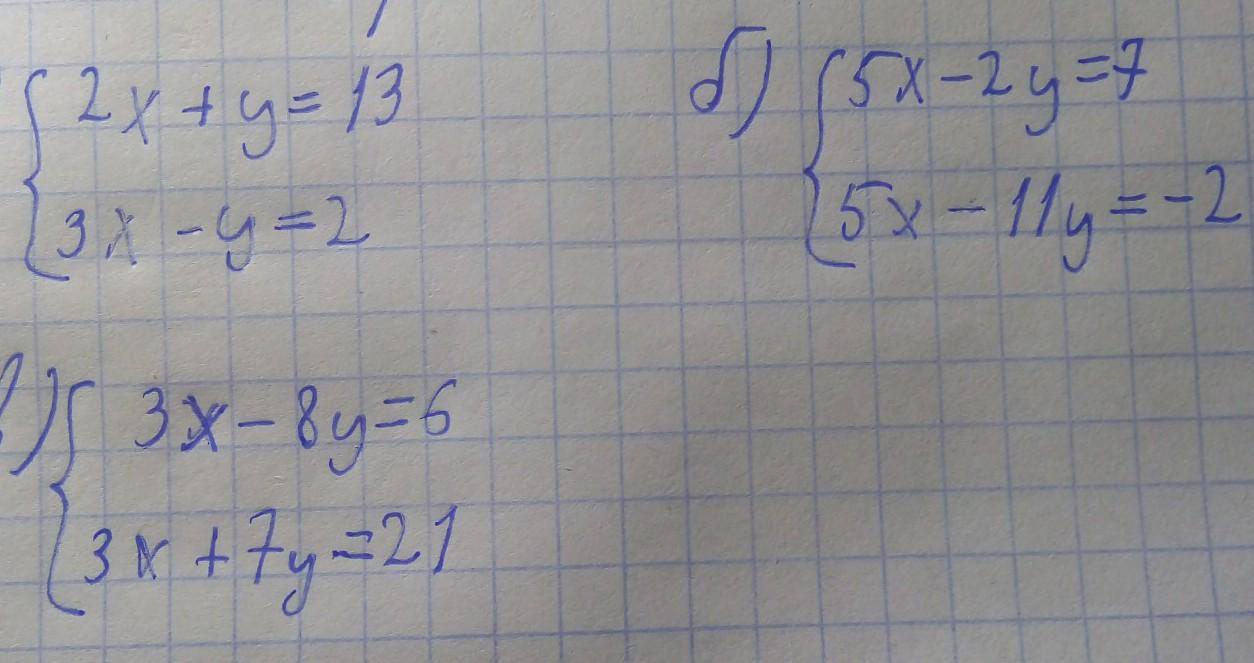 2x + y = 13
3x - y = 2
б) 5x - 2y = 7
5x - 11y = -2
) 3x - 8y = 6
3x + 7y = 21